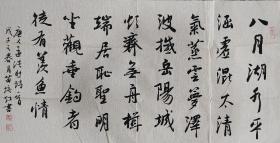 八月湖水平
涵虚混太清
氣蒸雲夢澤
波撼岳陽城
欲濟无舟楫
端居恥聖明
坐觀垂釣者
徒有羨魚情
唐人孟浩然詩一首
戊子之春月苗書